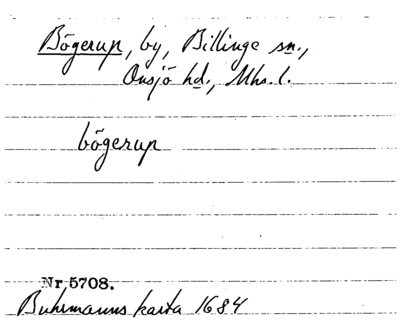 Bögerup, by, Billinge sn.,
Onsjö hd., Mhs. l.
bögerup
Nr 5708.
Buhrmanns karta 1684